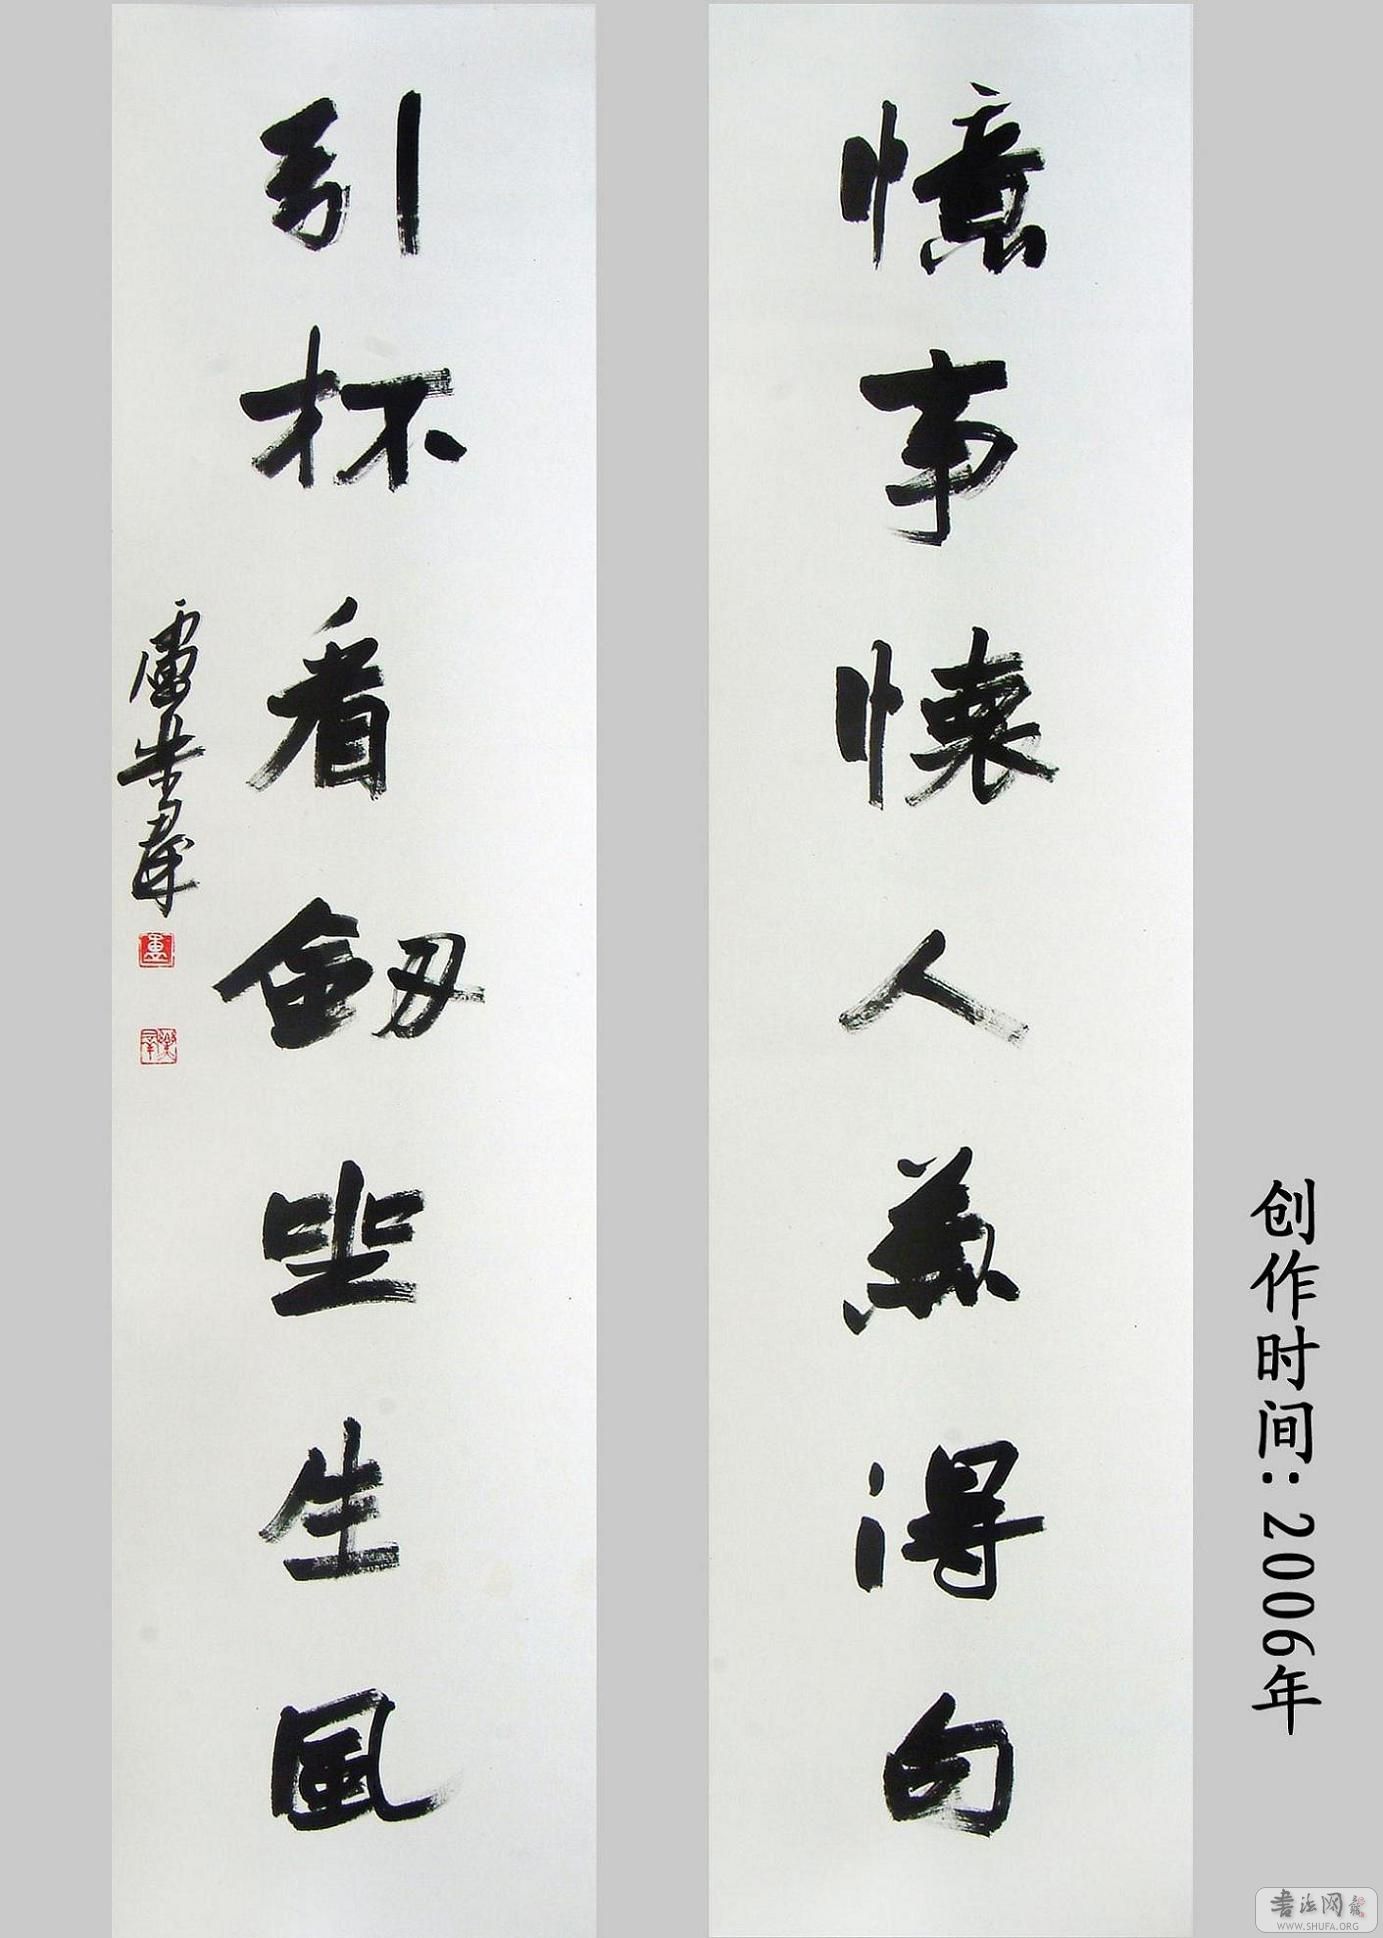 憶事懷人兼得句
引杯看劒坐生風
創作时间:2006年
书法网
WWW.SHUFA.ORG